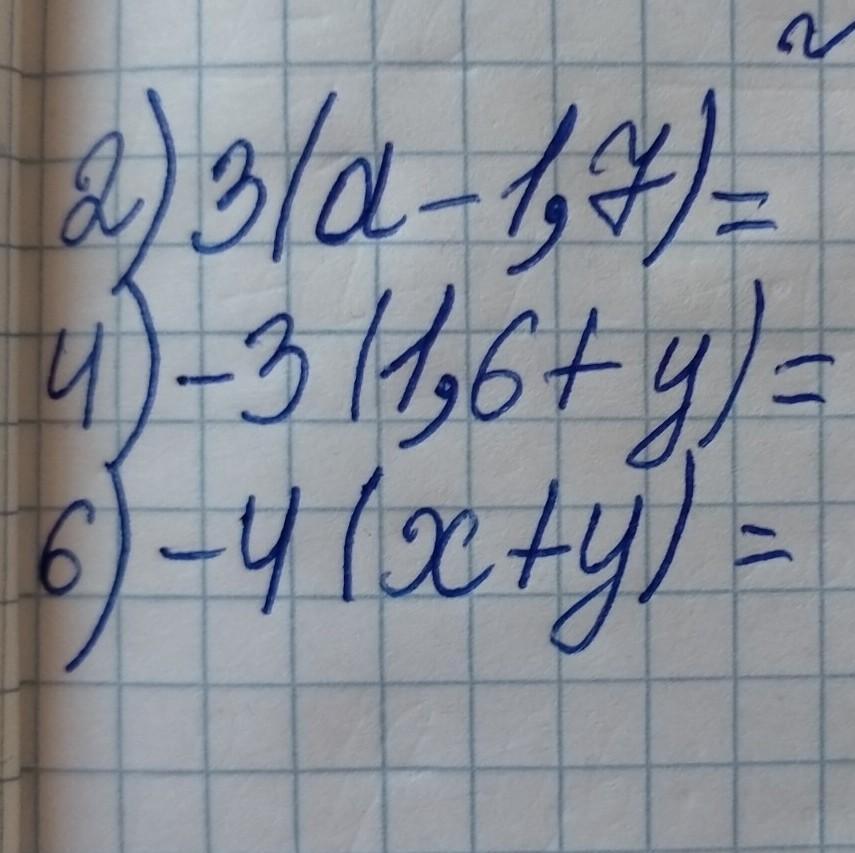 2) 3(a-1,7)=
4) -3(1,6+y)=
6) -4(x+y)=